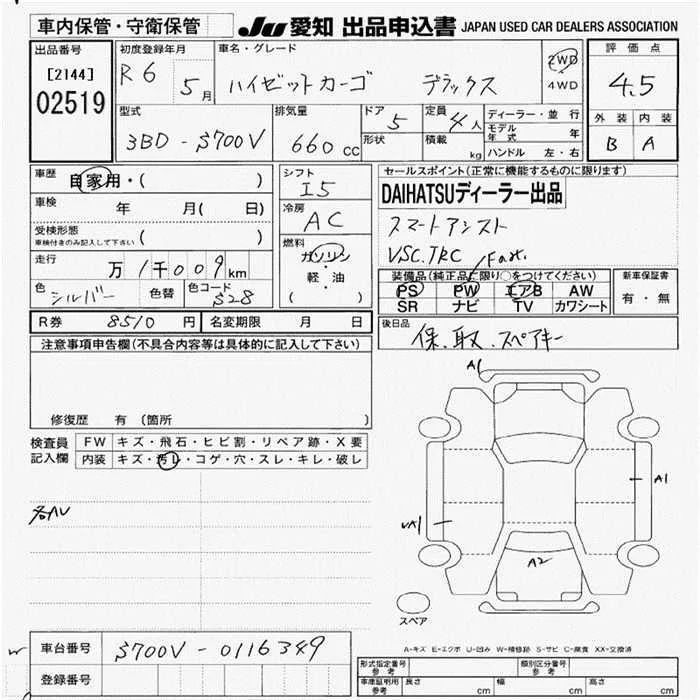 車内保管・守衛保管
JU 愛知 出品申込書 JAPAN USED CAR DEALERS ASSOCIATION
出品番号
[2144]
02519
初度登録年月
R6 5月
車名・グレード
ハイゼットカーゴ デラックス
2WD
4WD
評価点
4.5
外装 内装
B A
型式
3BD - S700V
排気量
660cc
ドア 5
形状
定員 4人
積載 kg
ディーラー・並行
モデル年式 年
ハンドル 左・右
車歴
自家用・( )
車検 年 月( 日)
受検形態
車検付きのみ記入して下さい ( )
走行
万 1千009km
色 シルバー 色替 色コード S28
シフト
I5
冷房
AC
燃料
ガソリン
軽・油
( )
セールスポイント(正常に機能するものに限ります)
DAIHATSUディーラー出品
スマートアシスト
VSC.TRC
装備品(純正品に限り○をつけてください)
PS PW エアB AW
SR ナビ TV カワシート
新車保証書
有・無
R券 8510円 名変期限 月 日
後日品
保.取.スペアキー
注意事項申告欄(不具合内容等は具体的に記入して下さい)
修復歴 有 (箇所 )
検査員記入欄
FW キズ・飛石・ヒビ割・リペア跡・X要
内装 キズ・汚レ・コゲ・穴・スレ・キレ・破レ
A1
A1
A2
スペア
A-キズ E-エクボ U-凹み W-補修跡 S-サビ C-腐食 XX-交換済
車台番号 S700V-0116349
登録番号
形式指定番号 参考
類別区分番号 参考
車庫証明用 参考 長さ cm 幅 cm 高さ cm